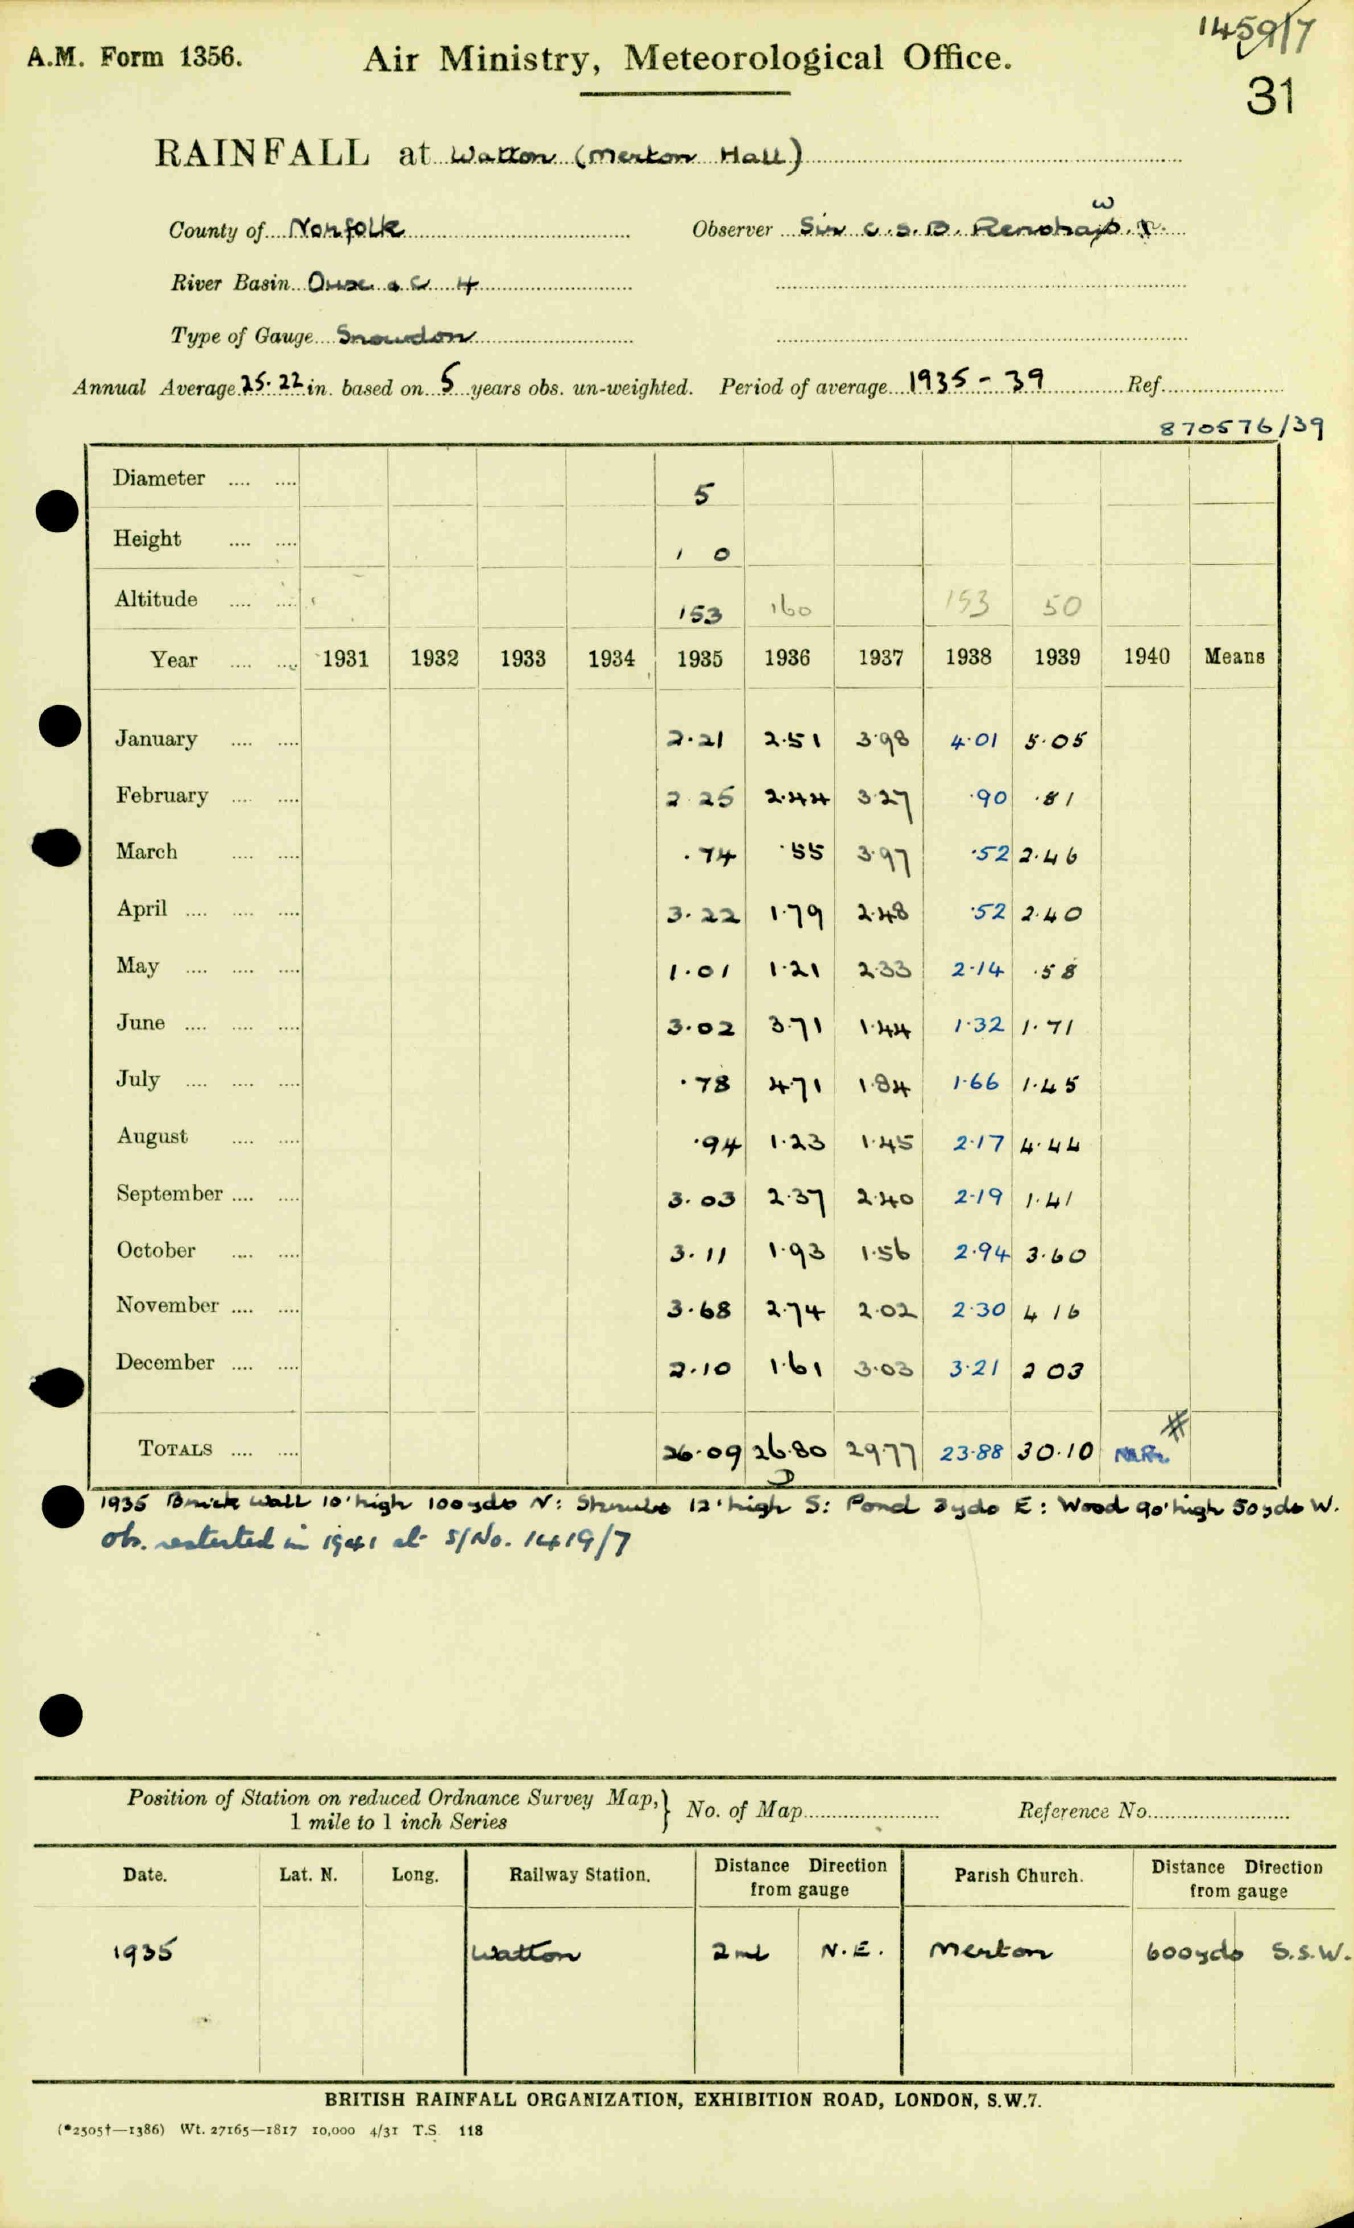 1459/7
A.M. Form 1356. Air Ministry, Meteorological Office.
31
RAINFALL at Watton (Merton Hall)
County of Norfolk Observer Sir C.S.B. Renshaw
River Basin Ouse & C 4
Type of Gauge Snowdon
Annual Average 25.22 in. based on 5 years obs. un-weighted. Period of average 1935 - 39 Ref.
870576/39
Diameter 5
Height 1 0
Altitude 153 160 153 50
Year 1931 1932 1933 1934 1935 1936 1937 1938 1939 1940 Means
January 2.21 2.51 3.98 4.01 5.05
February 2.25 2.44 3.27 .90 .81
March .74 .55 3.97 .52 2.46
April 3.22 1.79 2.48 .52 2.40
May 1.01 1.21 2.33 2.14 .58
June 3.02 3.71 1.44 1.32 1.71
July .78 4.71 1.84 1.66 1.45
August .94 1.23 1.45 2.17 4.44
September 3.03 2.37 2.40 2.19 1.41
October 3.11 1.93 1.56 2.94 3.60
November 3.68 2.74 2.02 2.30 4 16
December 2.10 1.61 3.03 3.21 2 03
TOTALS 26.09 26.80 29.77 23.88 30.10 #
1935 Brick Wall 10' high 100 yds N: Shrubs 12' high S: Pond 3 yds E: Wood 90' high 50 yds W.
Ob. restarted in 1941 at S/No. 1419/7
Position of Station on reduced Ordnance Survey Map, } No. of Map Reference No.
1 mile to 1 inch Series
Date. Lat. N. Long. Railway Station. Distance Direction from gauge Parish Church. Distance Direction from gauge
1935 Watton 2 ml N.E. Merton 600 yds S.S.W.
BRITISH RAINFALL ORGANIZATION, EXHIBITION ROAD, LONDON, S.W.7.
(*2505†—1386) Wt. 27165—1817 10,000 4/31 T.S. 118